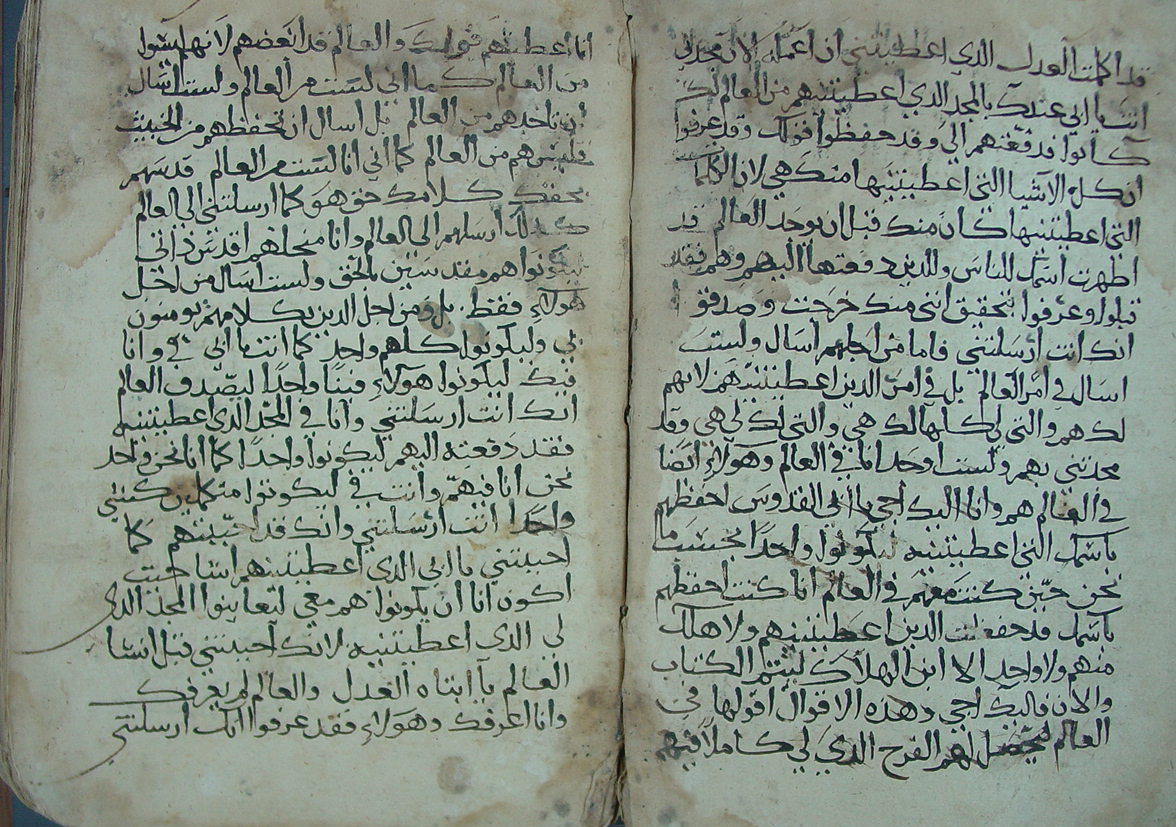 قد اكملت العمل الذي اعطيتني ان اعمله الان مجدني
انت يا ابي عندك بالمجد الذي اعطيتنيهم من العالم لك
كانوا قد دفعتهم الي وقد حفظوا قولك وقد عرفوا
ان كل الاشيا التي اعطيتنيها منك هي لان الكلما
التي اعطيتنيها كان منك قبل ان يوجد العالم قد
اظهرت اسمك للناس والذين دفعتها اليهم وهم فقد
قبلوا وعرفوا بتحقيق انني منك خرجت وصدقوا
انك انت ارسلتني فاما من اجلهم اسال ولست
اسال في امر العالم بل في امر الذين اعطيتنيهم لانهم
لك هم والتي لي كلها لك هي والتي لك لي هي وقد
مجدتني بهم ولست اوجد انا في العالم وهولاء ايضا
في العالم هم وانا اليك اجي يا ابي القدوس احفظهم
باسمك التي اعطيتنيه ليكونوا واحدا بحسب ما
نحن حين كنت معهم في العالم انا كنت احفظهم
باسمك قد حفظت الذين اعطيتنيهم ولا هلك
منهم ولا واحد الا ابن الهلاك ليتم الكتاب
والان فاليك اجي وهذه الاقوال اقولها في
العالم ليحصل لهم الفرح الذي لي كاملا فيهم
انا اعطيتهم قولك والعالم قد ابغضهم لانهم ليسوا
من العالم كما اني لست من العالم ولست اسال
ان تاخذهم من العالم بل اسال ان تحفظهم من الخبيث
فليس هم من العالم كما اني انا لست من العالم قدسهم
بحقك كلامك حق هو كما ارسلتني الي العالم
كذلك ارسلهم الي العالم وانا من اجلهم اقدس ذاتي
ليكونوا هم مقدسين بالحق ولست اسال من اجل
هولاء فقط بل ومن اجل الذين بكلامهم يومنون
بي وليكونوا كلهم واحد كما انت يا ابي في وانا
فيك ليكونوا هولاء فينا واحدا ليصدق العالم
انك انت ارسلتني وانا في المجد الذي اعطيتنيه
فقد دفعته اليهم ليكونوا واحدا كما انا نحن واحد
نحن انا فيهم وانت في ليكونوا متكملين كنتي
واحدا انت ارسلتني وانك قد احببتهم كما
احببتني يا ابي الذي اعطيتنيهم انشا حيث
اكون انا ان يكونوا هم معي ليعاينوا المجد الذي
لي الذي اعطيتنيه لانك احببتني قبل انشا
العالم يا ابتاه العدل والعالم لم يعرفك
وانا اعرفك وهولاء فقد عرفوا انك ارسلتني